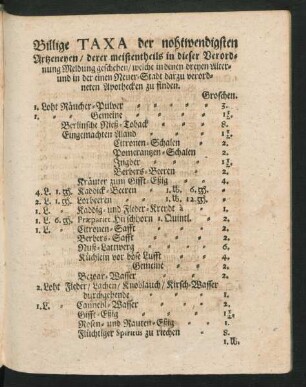 Billige TAXA der nohtwendigsten
Artzeneyen / derer meistentheils in dieser Verord-
nung Meldung geschehen / welche in denen dreyen Alter-
und in der einen Neuer-Stadt darzu verord-
neten Apothecken zu finden.
Groschen.
1. Loht Räucher-Pulver 3.
1. Gemeine 1½.
Berlinische Nieß-Toback 8.
Eingemachten Aland 1½.
Citronen-Schalen 2.
Pomerantzen-Schalen 2.
Ingber 1½.
Berbers-Beeren 2.
Kräuter zum Gifft-Eßig 4.
Kaddick-Beeren 2.
Lorbeeren 1.
Kaddig- und Flieder-Kreyde à 1.
Præpariet Hirschhorn 1. Quintl. 2.
1. L. Citronen-Safft 2.
Berbers-Safft 2.
Nuß-Lattwerg 6.
Küchlein vor böse Lufft 4.
Gemeine 2.
Bezoar-Wasser 2.
2. Loht Flieder / Lachen / Knoblauch / Kirsch-Wasser
durchgehends 1.
1. L. Canneel-Wasser 2.
Gifft-Eßig 1½.
Rosen- und Rauten-Eßig 1.
Flüchtiger Spiritus zu riechen 8.
1. lb.